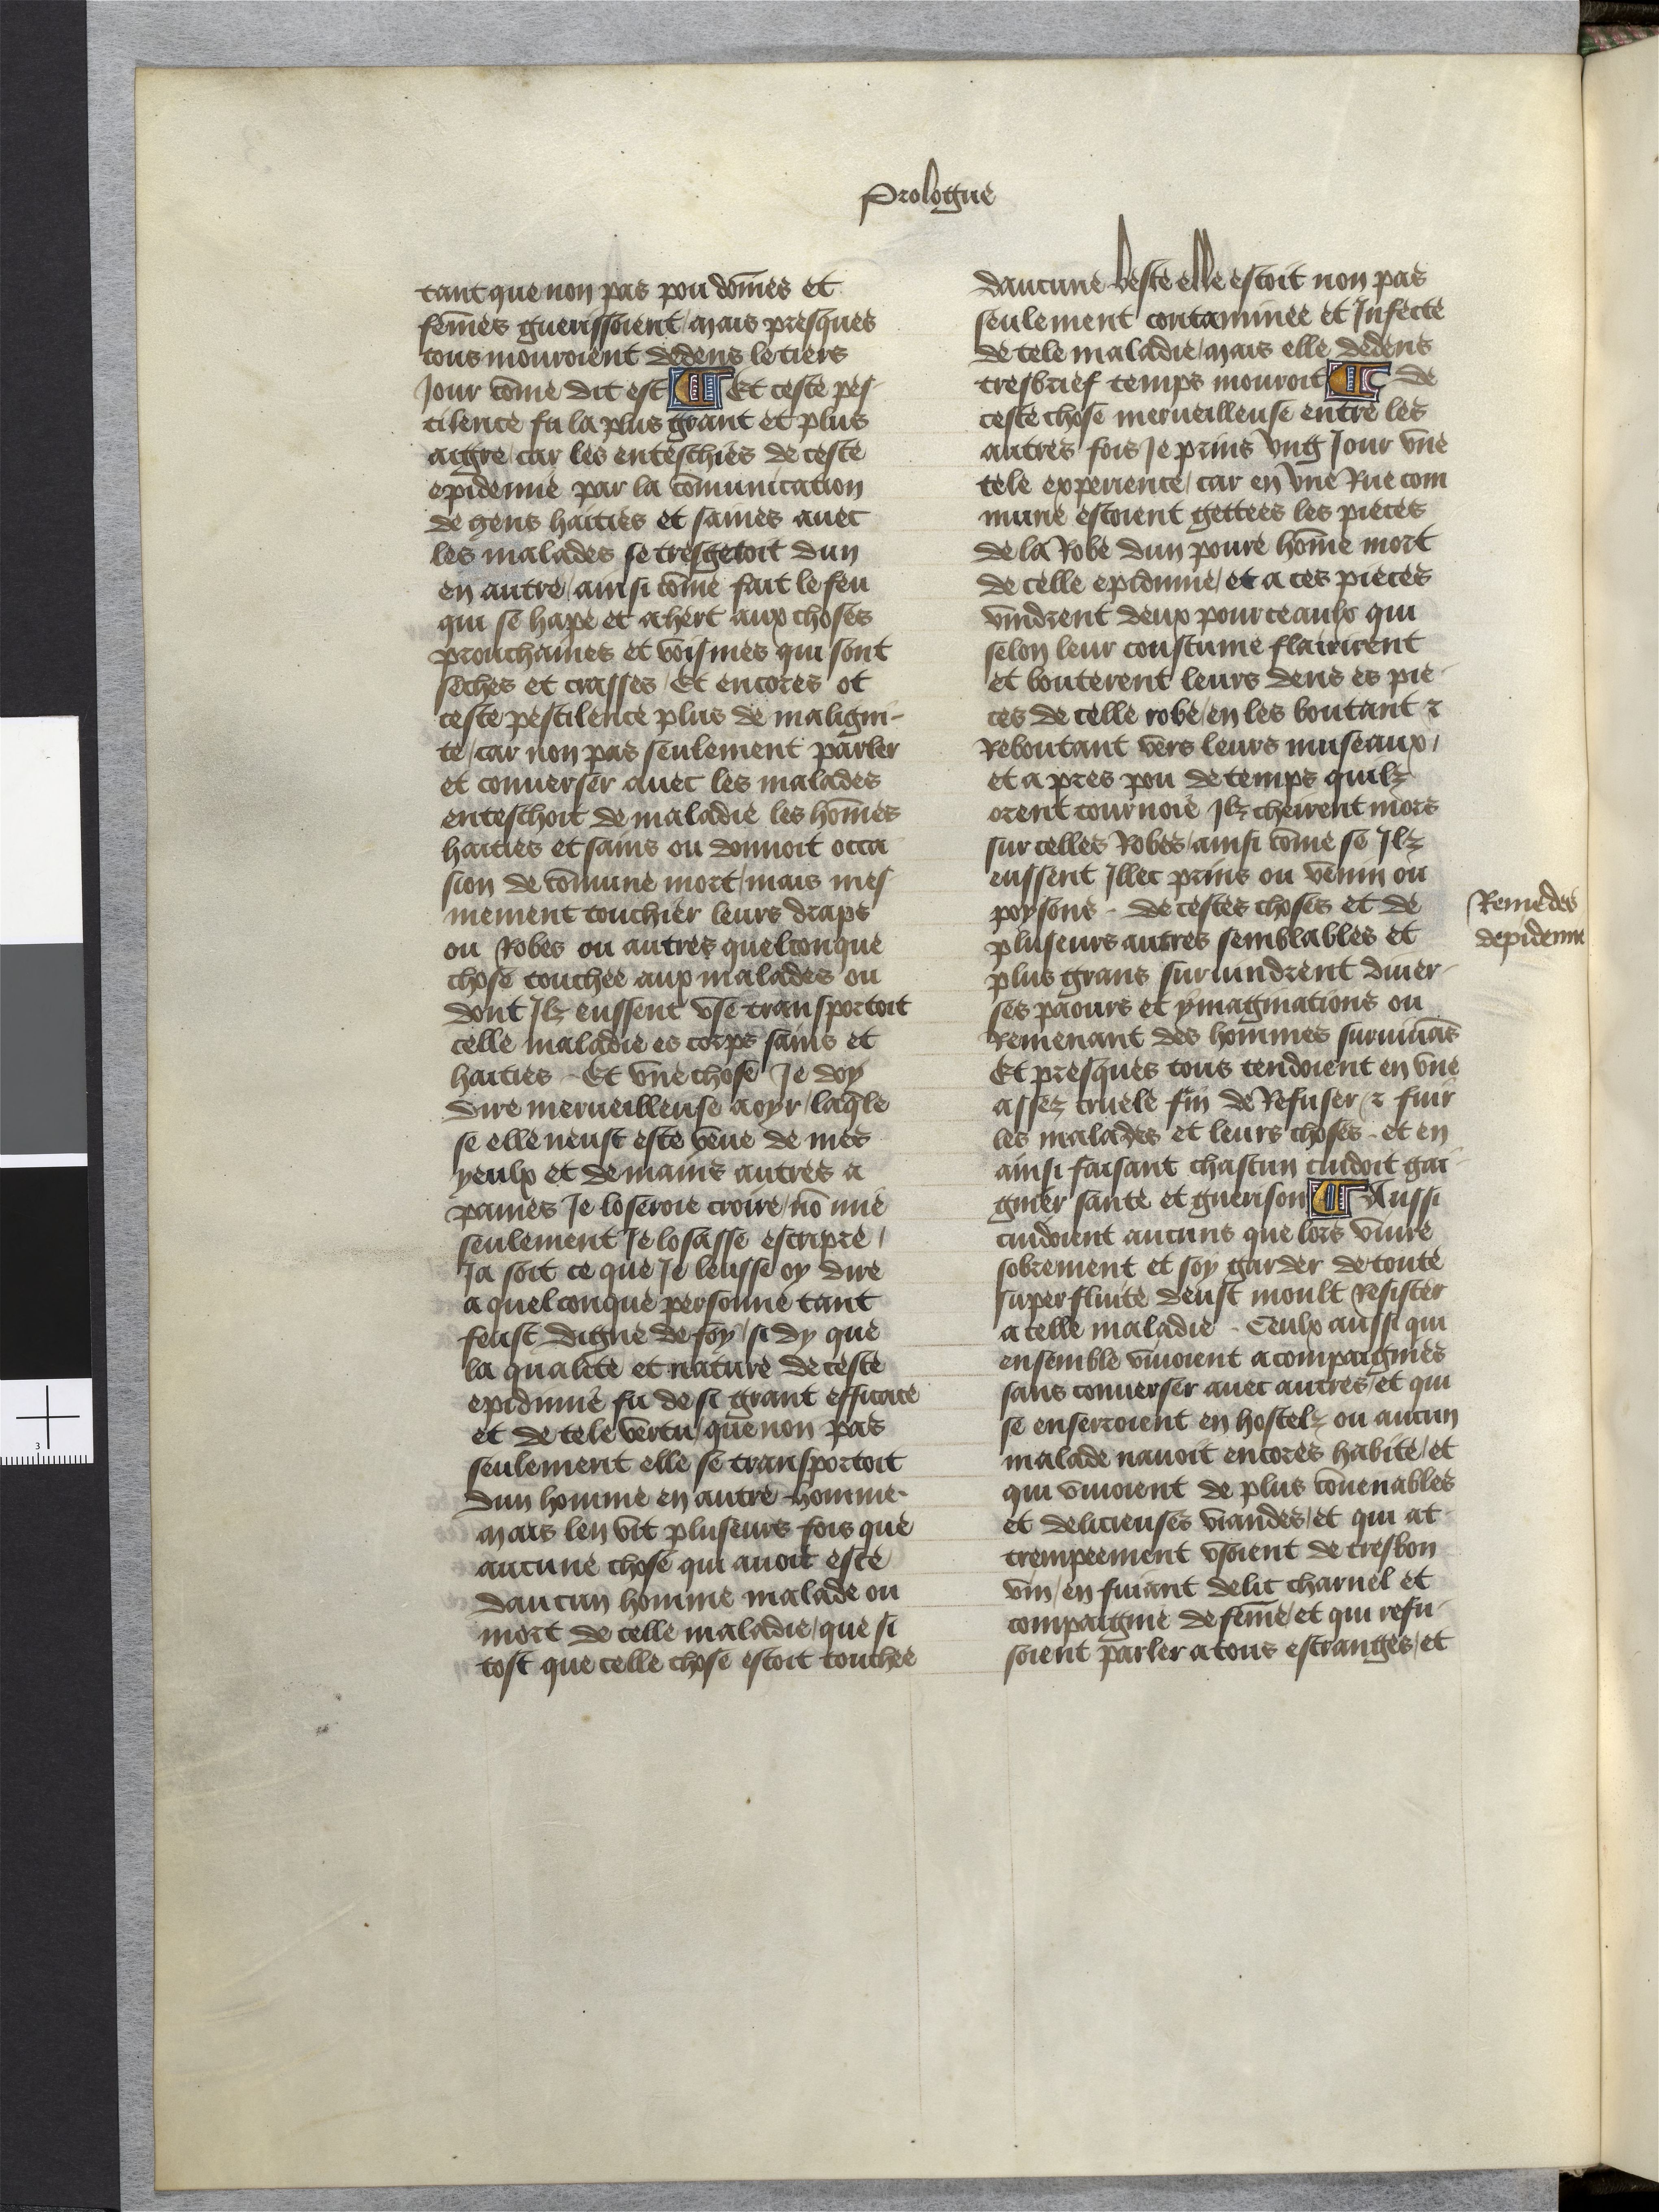 Prologue
tant que non pas pou dom̄es et
fem̄es guerissoient / mais presques
tous mouroient dedens le tiers
Jour com̄e dit est ¶ Et ceste pes-
tilence fu la plus grant et plus
aigre / car les enteschies de ceste
epidemie par la com̄unication
de gens haities et saines auec
les malades se tresgetoit dun
en autre / ainsi com̄e fait le feu
qui se hape et ahert aux choses
prouchaines et voisines qui sont
seches et crasses / Et encores ot
ceste pestilence plus de maligni-
te / car non pas seulement parler
et conuerser auec les malades
enteschoit de maladie les hom̄es
haities et sains ou donnoit occa
sion de com̄une mort / mais mes
mement touchier leurs draps
ou Robes ou autres quelconque
chose touchee aux malades ou
dont Ilz eussent vse transportoit
celle maladie es corps sains et
haities - Et vne chose Je doy
dire merueilleuse a oyr / laq̄le
se elle neust este veue de mes
yeulx et de mains autres a
paines Je loseroie croire / nō mie
seulement Je losasse escripre /
Ja soit ce que Je leusse oy dire
a quelconque personne tant
feust digne de foy / si dy que
la qualite et nature de ceste
epidimie fu de si grant efficace
et de tele vertu / que non pas
seulement elle se transportoit
dun homme en autre homme-
mais len vit pluseurs fois que
aucune chose qui auoit este
daucun homme malade ou
mort de celle maladie / que si
tost que celle chose estoit touchee
daucune beste elle estoit non pas
seulement contaminee et Infecte
de tele maladie / mais elle dedens
tresbrief temps mouroit ¶ - de
ceste chose merueilleuse entre les
autres fois Je prins vng Jour vne
tele experience / car en vne Rue com
mune estoient gettees les pieces
de la Robe dun poure hom̄e mort
de celle epidimie / et a ces pieces
vindrent deux pourceaulx qui
selon leur coustume flairirent
et bouterent leurs dens es pie-
ces de celle robe / en les boutant ⁊
Reboutant vers leurs museaux /
et a pres pou de temps quilz
orent tournoie Ilz cheirent mors
sur celles Robes / ainsi com̄e se Ilz
eussent Illec prins ou venin ou
poysons - de cestes choses et de
pluseurs autres semblables et
plus grans suruindrent diuer-
ses paours et ymaginations ou
Remenant des hommes suruiuās
Et presques tous tendoient en vne
assez cruele fin de Refuser ⁊ fuir
les malades et leurs choses - et en
ainsi faisant chascun cuidoit gai-
gnier sante et guerison ¶ Aussi
cuidoient aucuns que lors viure
sobrement et soy garder de toute
superfluite deust moult Resister
a celle maladie - Ceulx aussi qui
ensemble viuoient acompaignies
sans conuerser auec autres / et qui
se enserroient en hostelz ou aucun
malade nauoit encores habite / et
qui viuoient de plus cōuenables
et delicieuses viandes / et qui at-
trempeement vsoient de tresbon
vin / en fuiant delit charnel et
compaignie de fem̄e / et qui refu-
soient parler a tous estranges / et
Remedes
depidemie